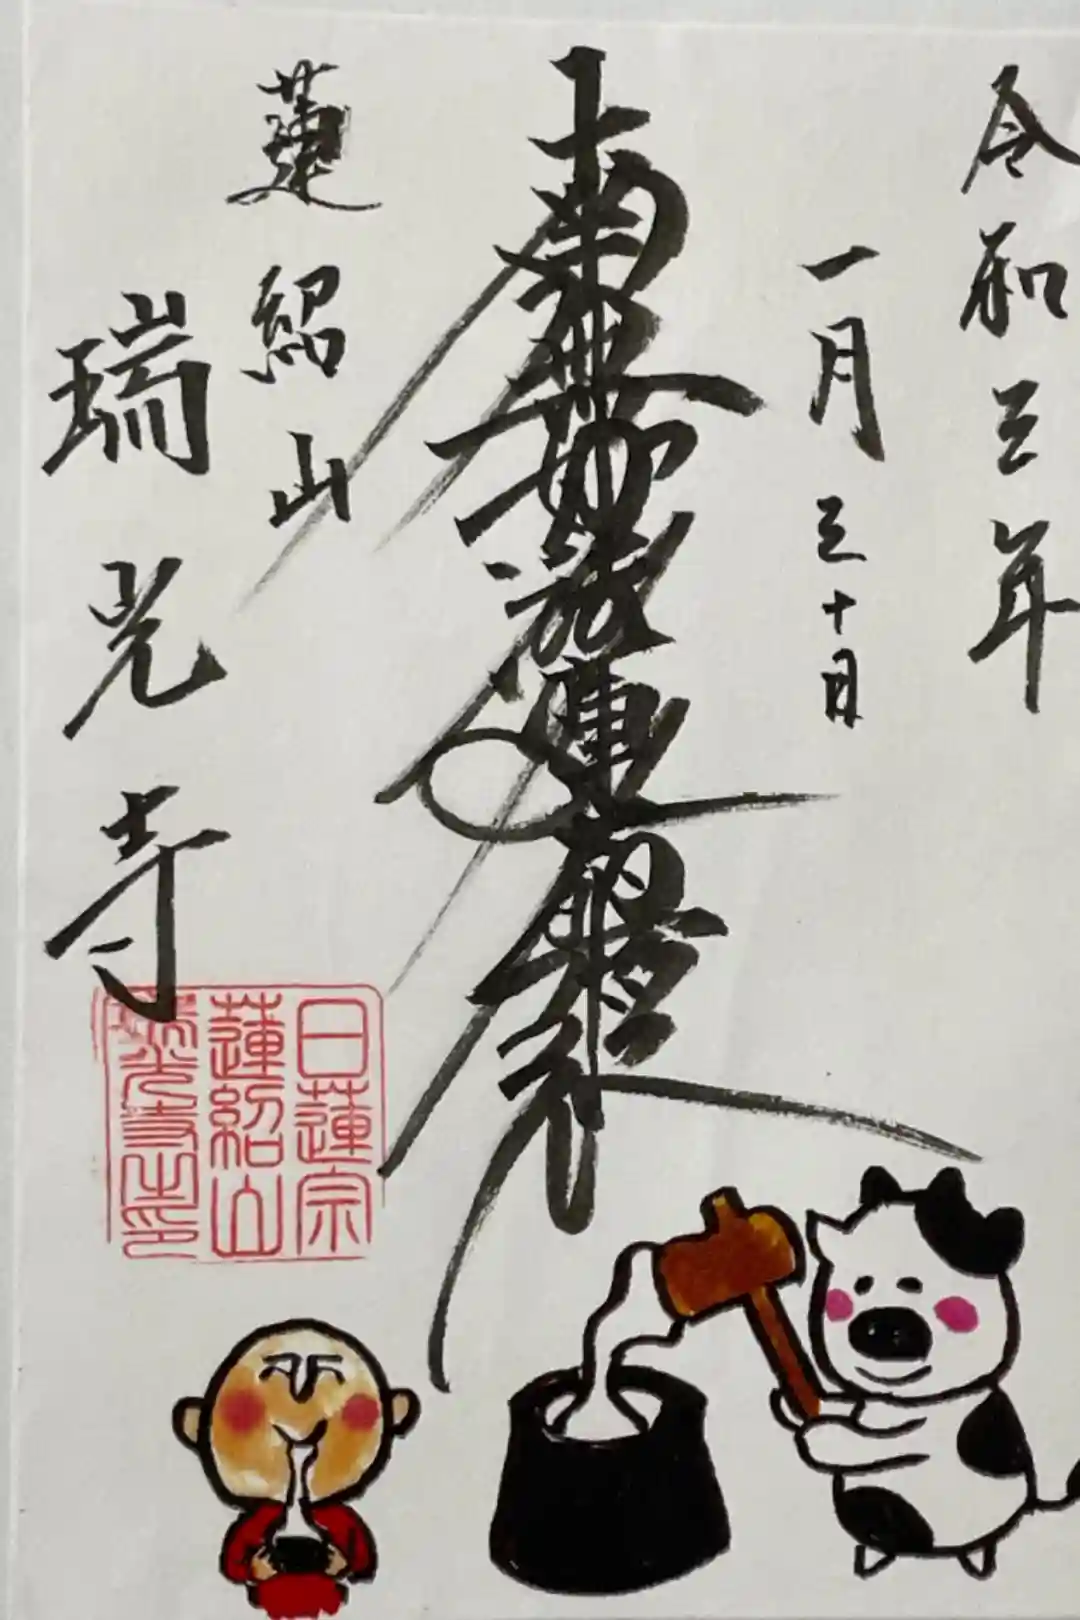 令和三年
一月三十日
南無妙法蓮華経
蓮紹山
瑞光寺
日蓮宗
蓮紹山
瑞光寺之印